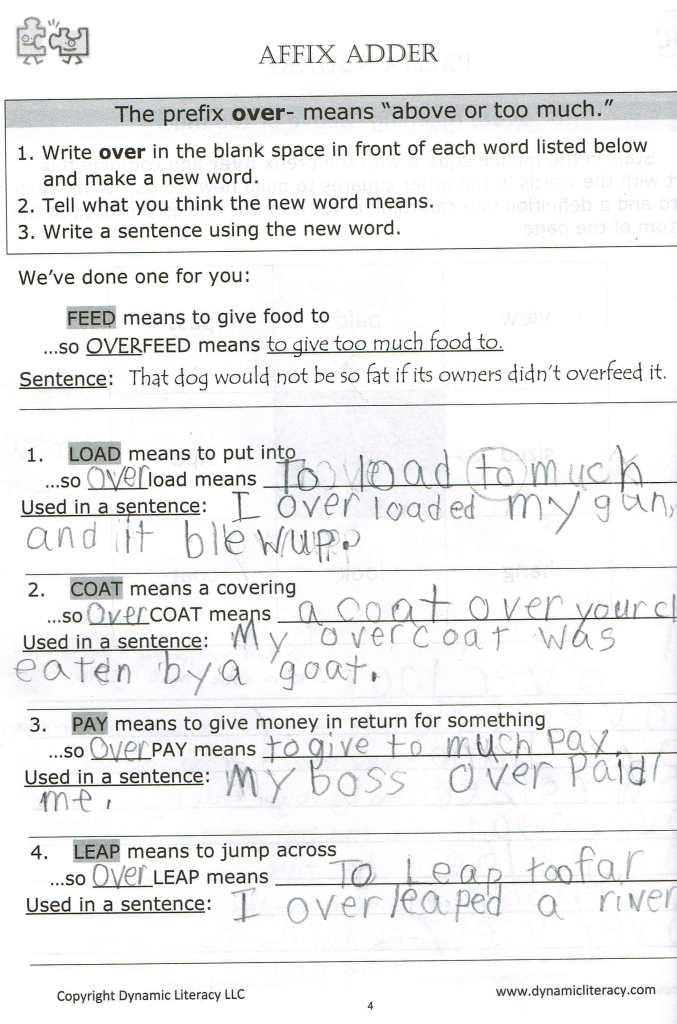 AFFIX ADDER
The prefix over- means "above or too much."
1. Write over in the blank space in front of each word listed below
and make a new word.
2. Tell what you think the new word means.
3. Write a sentence using the new word.
We've done one for you:
FEED means to give food to
...so OVERFEED means to give too much food to.
Sentence: That dog would not be so fat if its owners didn't overfeed it.
1. LOAD means to put into
...so over load means To load to much
Used in a sentence: I over loaded my gun,
and it blew up.
2. COAT means a covering
...so Over COAT means a coat over your cl
Used in a sentence: My overcoat was
eaten by a goat.
3. PAY means to give money in return for something
...so Over PAY means to give to much Pay.
Used in a sentence: My boss over Paid
me.
4. LEAP means to jump across
...so Over LEAP means To Leap too far
Used in a sentence: I over leaped a river
Copyright Dynamic Literacy LLC
www.dynamicliteracy.com
4